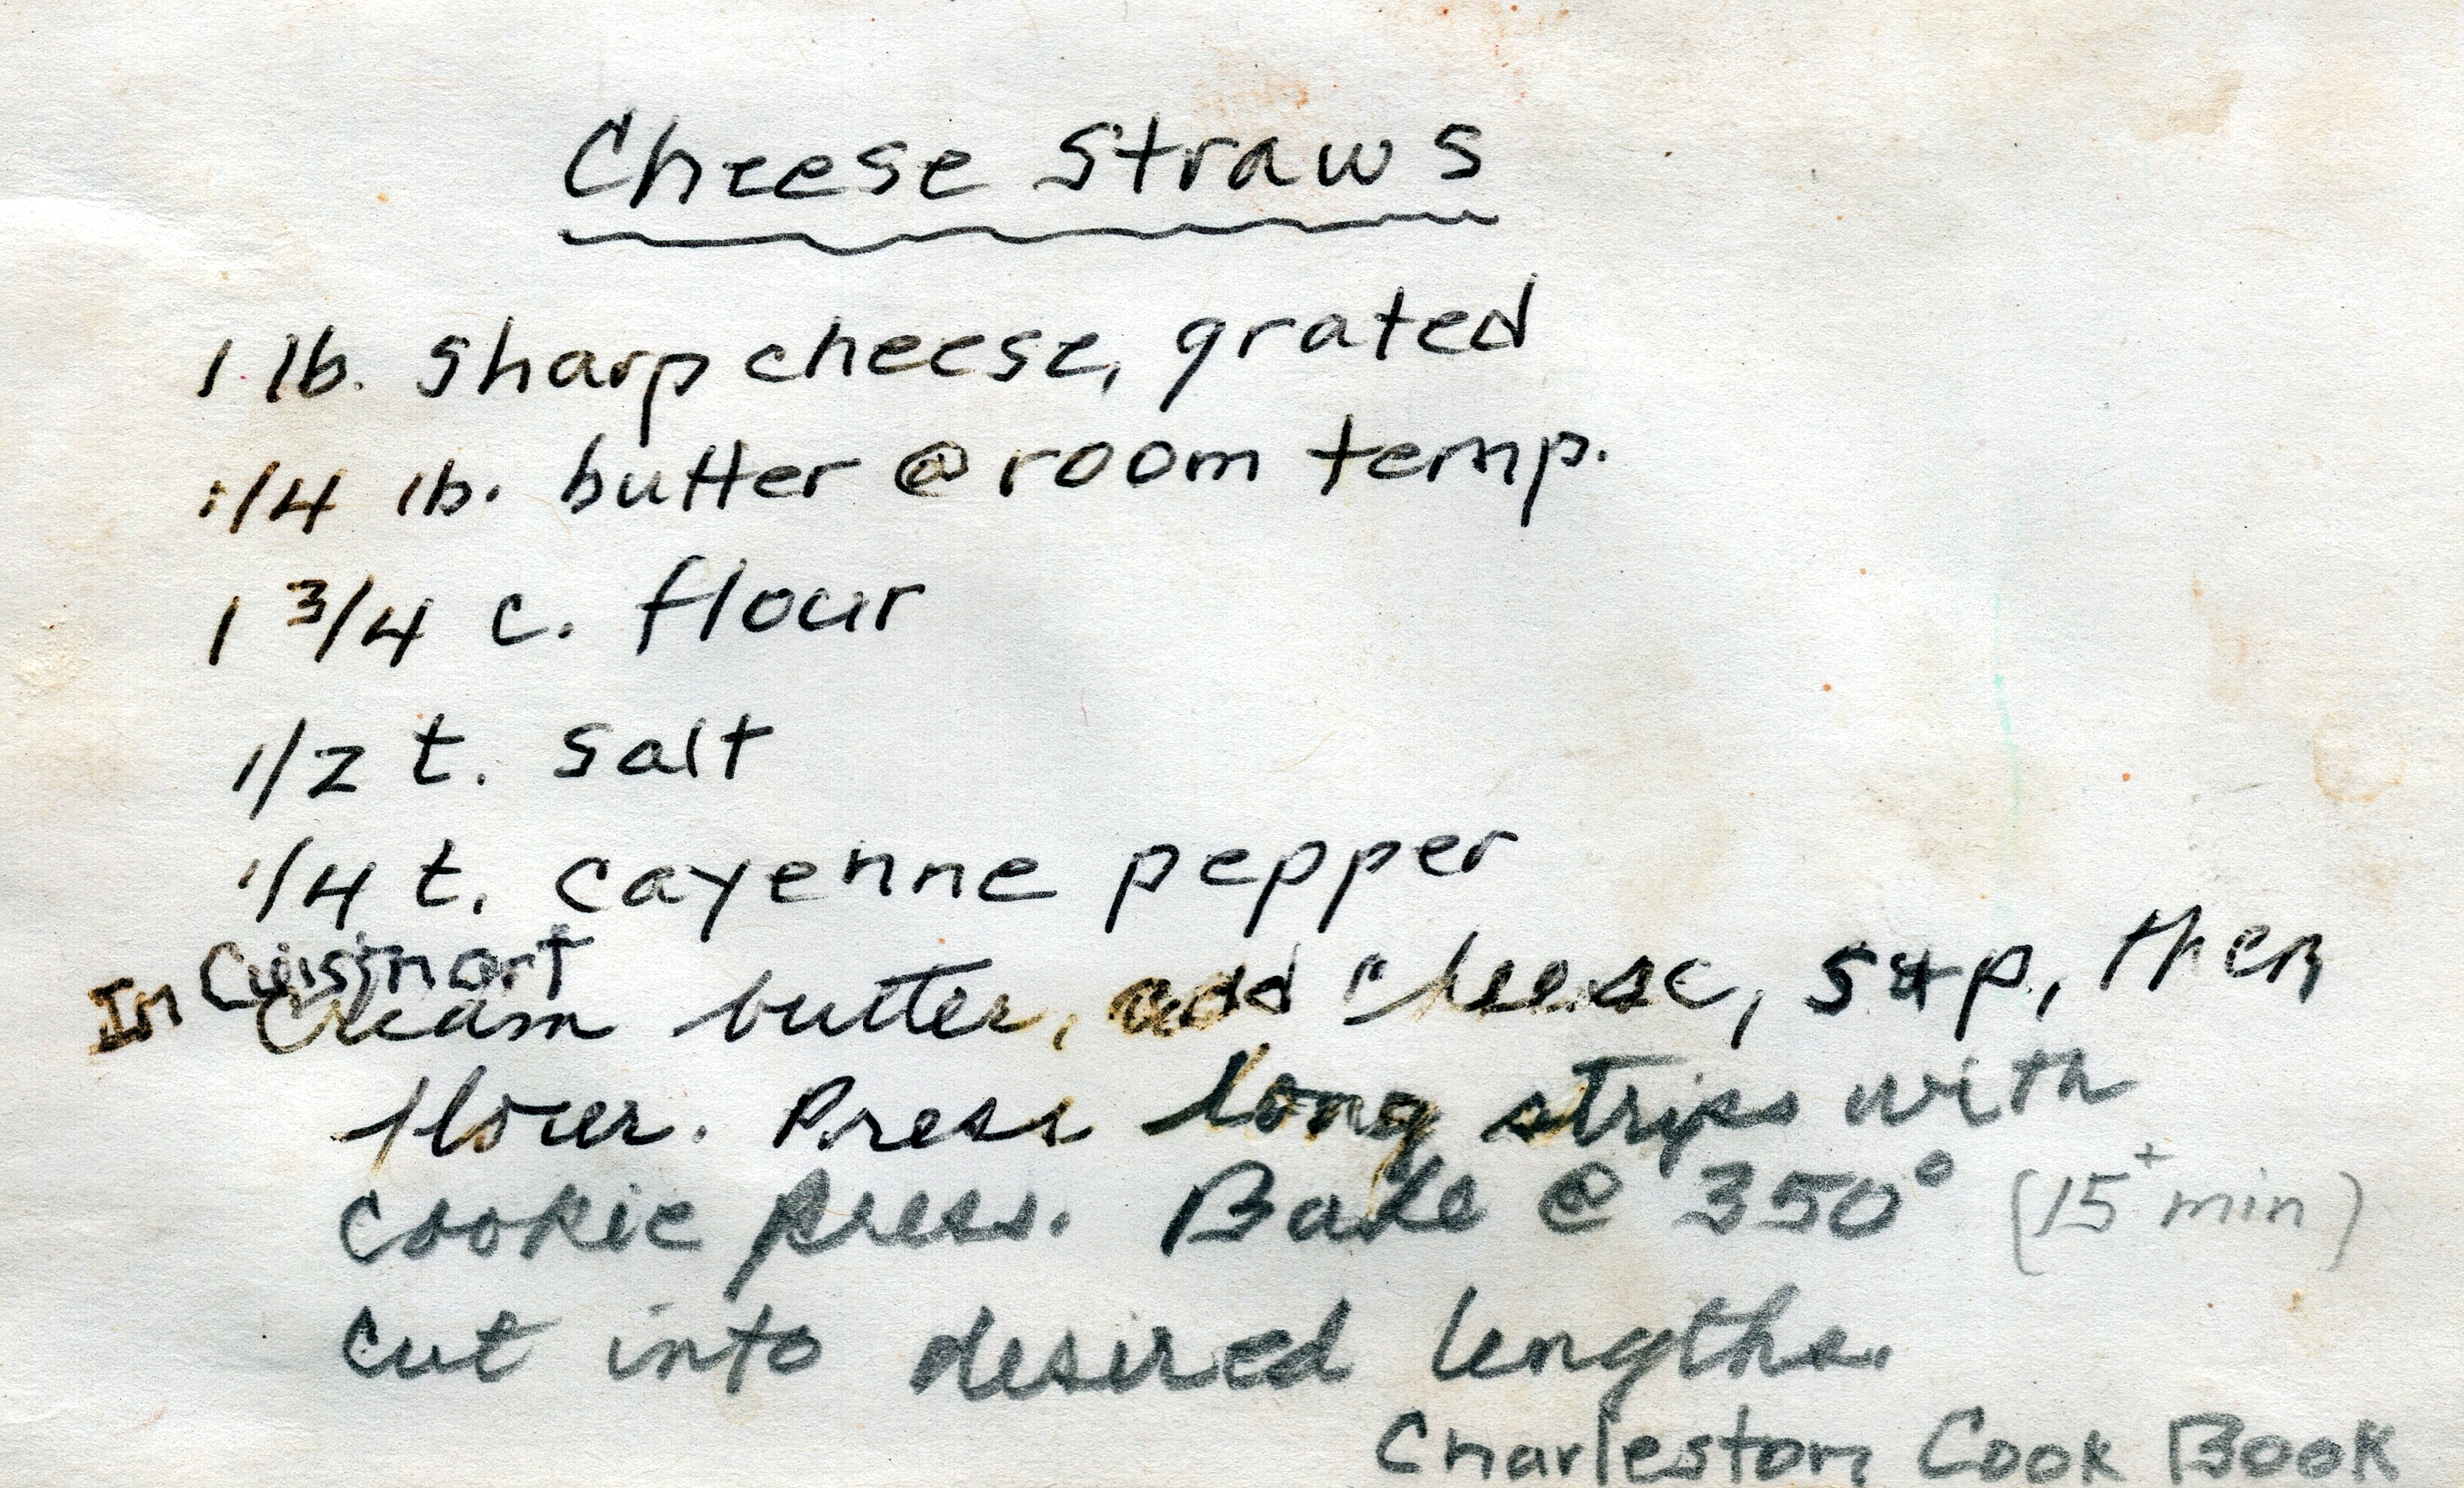 Cheese Straws
1 lb. sharp cheese, grated
1/4 lb. butter @ room temp.
1 3/4 c. flour
1/2 t. salt
1/4 t. cayenne pepper
In Cuisinart
Cream butter, add cheese, s+p, then
flour. Press long strips with
cookie press. Bake @ 350° (15+ min)
cut into desired lengths.
Charleston Cook Book